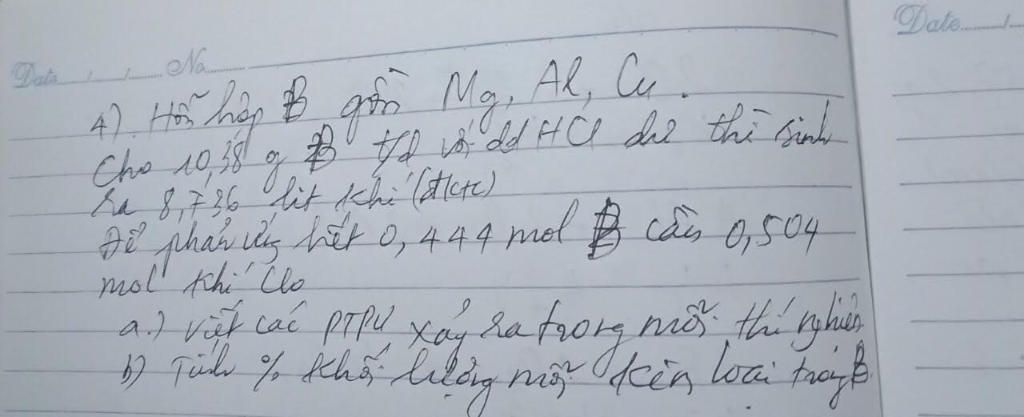 Date / / No
Date /
4). Hỗn hợp B gồm Mg, Al, Cu.
Cho 10,38 g B t/d với dd HCl dư thì sinh
ra 8,736 lít khí (đktc)
Để phản ứng hết 0,444 mol B cần 0,504
mol khí Clo
a.) viết các PTPƯ xảy ra trong mỗi thí nghiệm
b) Tính % khối lượng mỗi kim loại trong B.